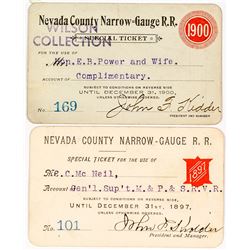 Nevada County Narrow-Gauge R.R.
WILSON
COLLECTION
SPECIAL TICKET
1900
FOR THE USE OF
E.B.Power and Wife.
Account
Complimentary.
SUBJECT TO CONDITIONS ON REVERSE SIDE
UNTIL DECEMBER 31st, 1900,
UNLESS OTHERWISE ORDERED.
No 169
John F. Kidder
PRESIDENT AND MANAGER.
NEVADA COUNTY NARROW-GAUGE R. R.
SPECIAL TICKET FOR THE USE OF
1897
C. Mc Neil,
Account Gen'l.Sup't.M.& P.& S.R.V.R.
SUBJECT TO CONDITIONS ON REVERSE SIDE,
UNTIL DECEMBER 31st, 1897,
UNLESS OTHERWISE ORDERED.
No. 101
John F. Kidder
President and Manager.